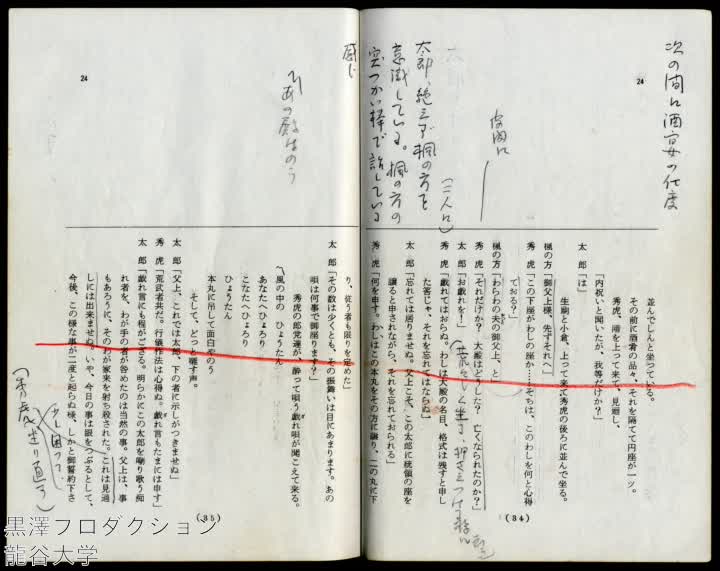 24
次の間に酒宴の仕度
太郎、絶えず楓の方を
意識している。楓の方の
並んでしんと坐っている。
その前に酒肴の品々、それを隔てて円座が一ツ。
秀虎、階を上って来て、見廻し、
「内祝いと聞いたが、我等だけか?」
太郎「は」
生駒と小倉、上って来て秀虎の後ろに並んで坐る。
楓の方「御父上様、先ずそれへ」
秀虎「この下座がわしの座か……そちは、このわしを何と心得
ておる?」
楓の方「わらわの夫の御父上、と」
秀虎「それだけか? 大殿はどうした? 亡くなられたのか?」
太郎「お戯れを!」
秀虎「戯れてはおらぬ。わしは大殿の名目、格式は残すと申し
た筈じゃ、それを忘れてはならぬ」
太郎「忘れては居りませぬ。父上こそ、この太郎に統領の座を
譲ると申されながら、それを忘れておられる」
秀虎「何を申す。わしはこの本丸をその方に譲り、二の丸に下
(34)
24
り、従う者も限りを定めた」
太郎「その数は少くとも、その振舞いは目にあまります。あの
唄は何事で御座ります?」
秀虎の郎党達が、酔って唄う戯れ唄が聞こえて来る。
〽風の中の ひょうたん
あなたへひょろり
こなたへひょろり
ひょうたん
本丸に吊して面白やのう
そして、どっと囃す声。
太郎「父上、これでは太郎、下の者に示しがつきませぬ」
秀虎「荒武者共だ。行儀作法は心得ぬ。戯れ言もたまには申す」
太郎「戯れ言にも程がござる。明らかにこの太郎を嘲り歌う痴
れ者を、わが手の者が咎めたのは当然の事。父上は、事
もあろうに、その方が家来を射ち殺された。これは見逃
しには出来ませぬ。いや、今日の事は眼をつぶるとして、
今後、この様な事が二度と起らぬ様、しかと御誓約下さ
(35)
黒澤プロダクション
龍谷大学